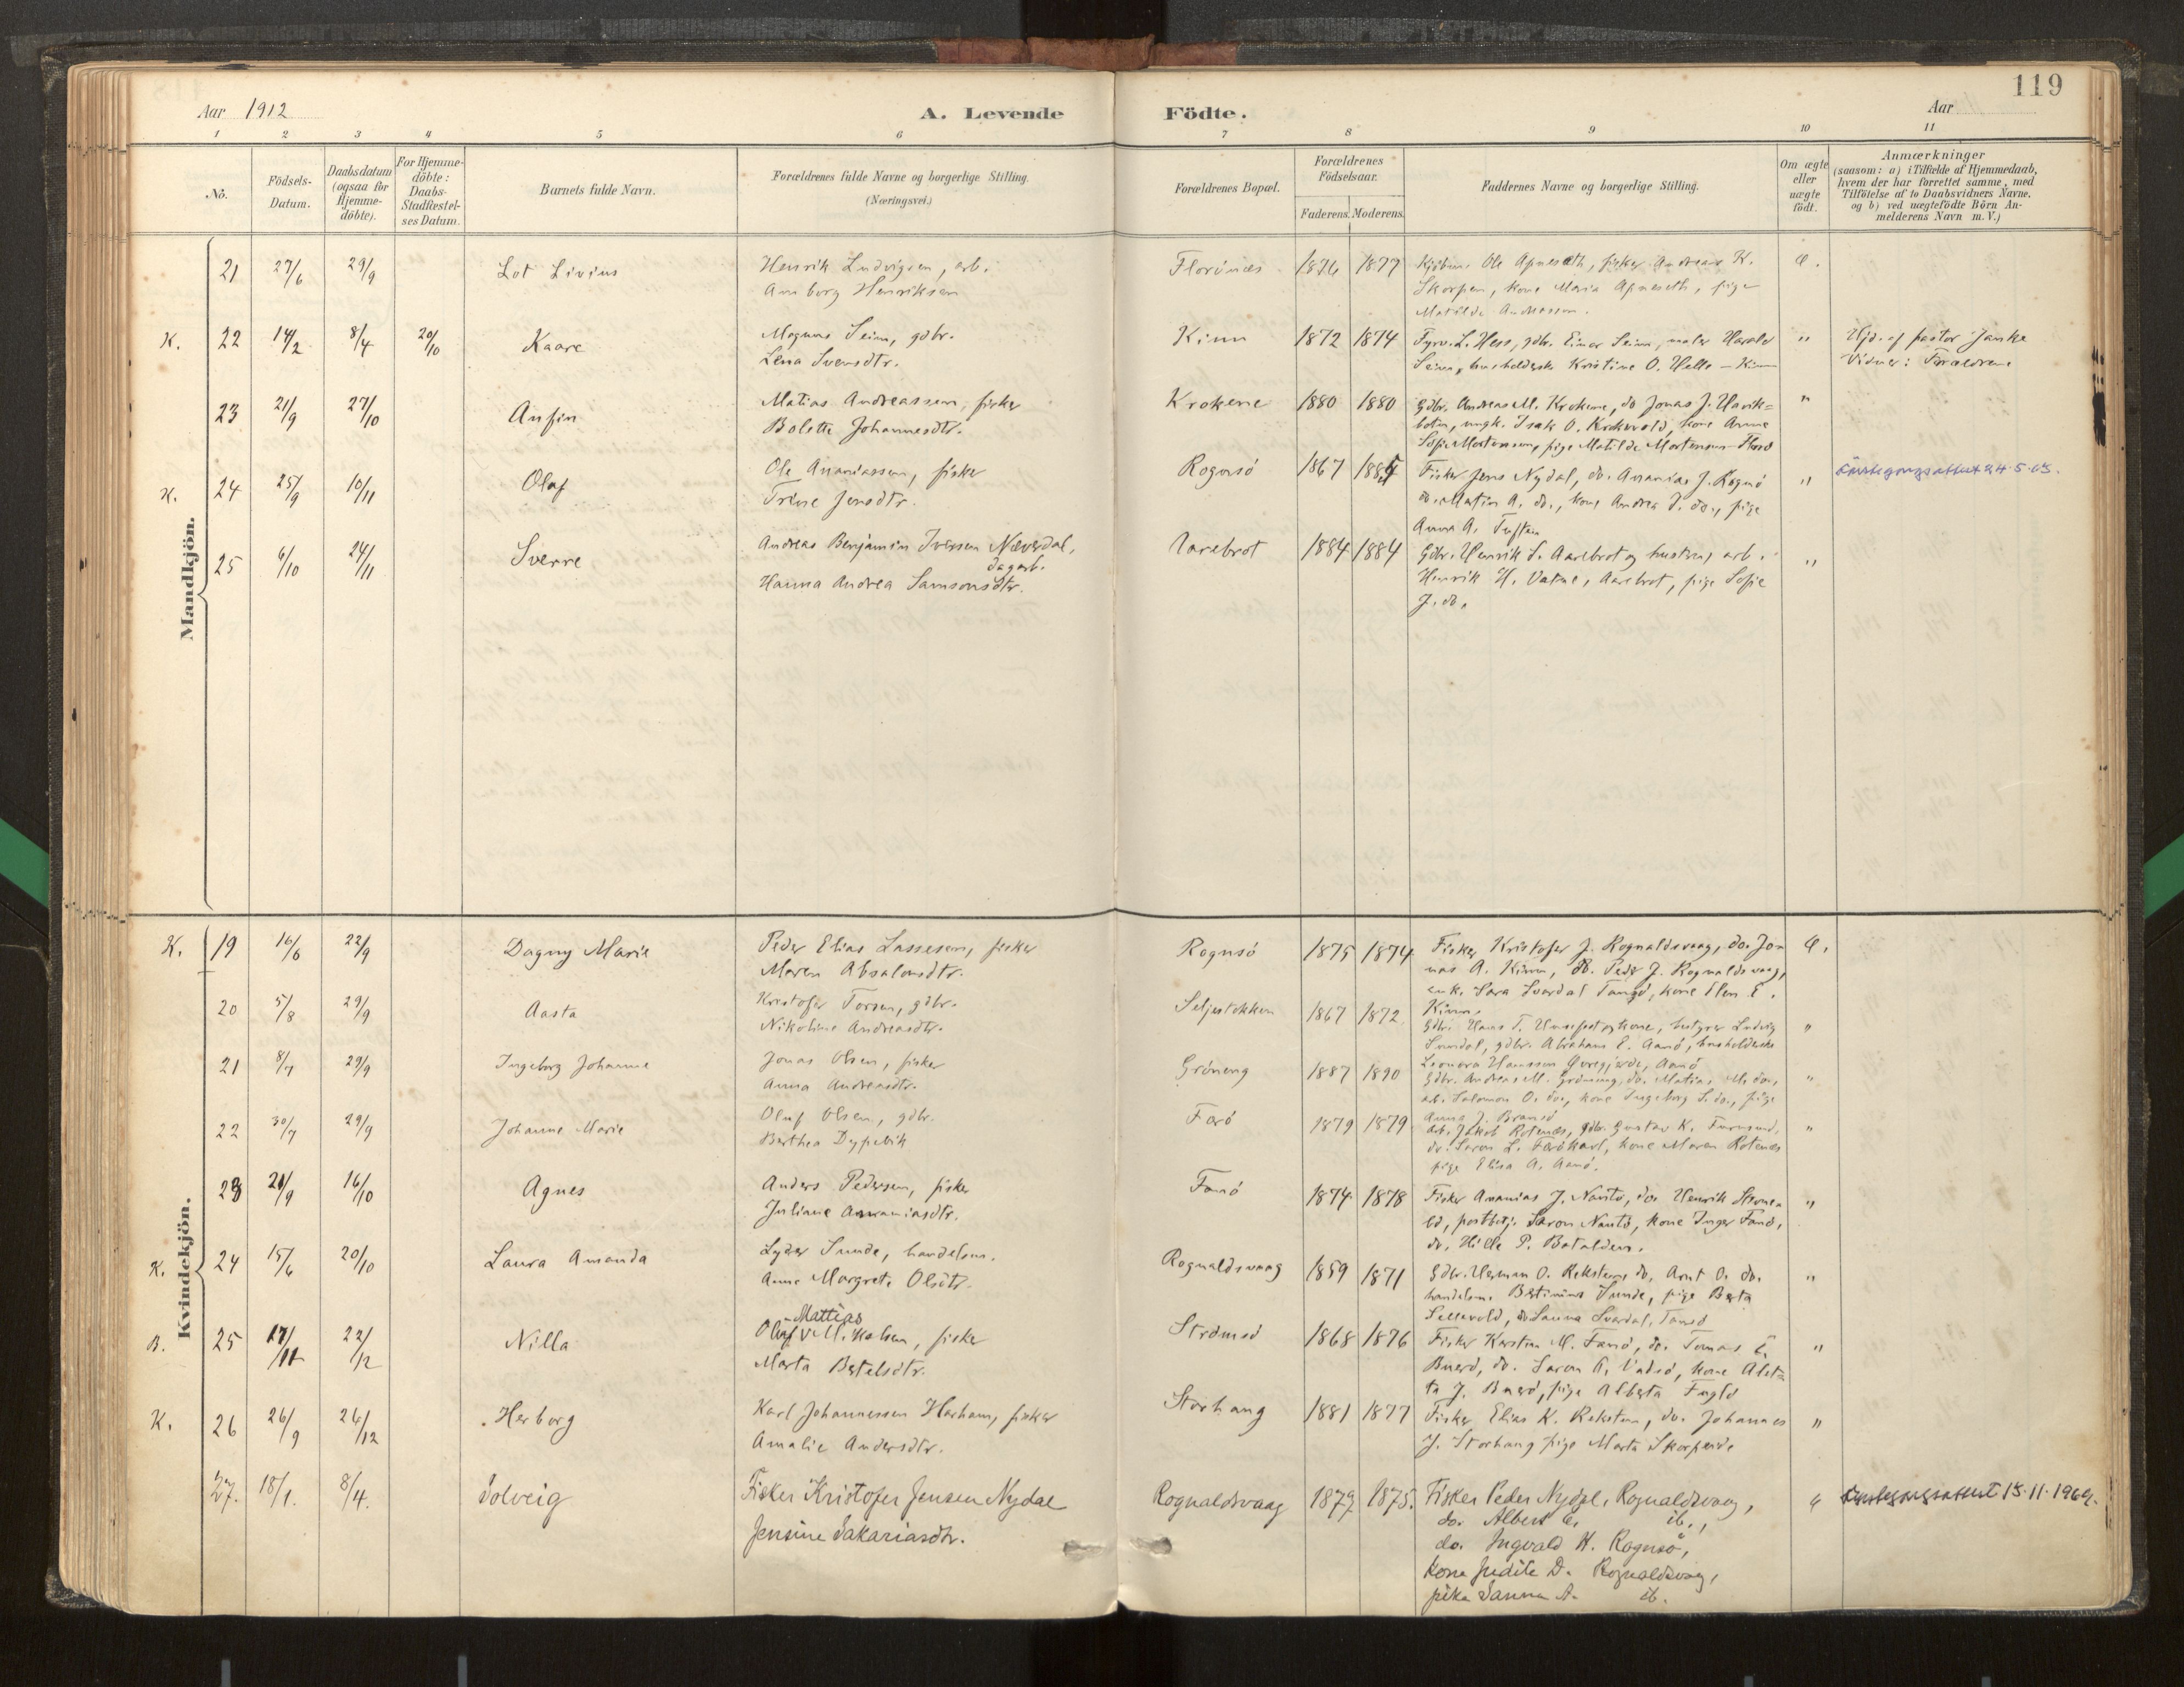 119
Aar 1912
A. Levende Födte.
Aar
1 2 3 4 5 6 7 8 9 10 11
No.
Födsels-Datum.
Daabsdatum (ogsaa for Hjemme-döbte).
For Hjemme-döbte: Daabs-Stadfæstel-ses Datum.
Barnets fulde Navn.
Forældrenes fulde Navne og borgerlige Stilling.
(Næringsvei.)
Forældrenes Bopæl.
Forældrenes Födselsaar.
Faderens. Moderens.
Faddernes Navne og borgerlige Stilling.
Om ægte eller uægte födt.
Anmærkninger
(saasom: a) i Tilfælde af Hjemmedaab,
hvem der har forrettet samme, med
Tilföielse af to Daabsvidners Navne.
og b) ved uægtefödte Börn An-
melderens Navn m. V.)
Mandkjön.
21 27/6 29/9 Lot Livius Henrik Ludvigsen, arb. Florönæs 1876 1877 Ole Apneseth, fisker Andreas K.
Henriksen Skorpen, kone Maria Apneseth, pige
Matilde Andreassen.
K. 22 14/2 8/4 20/10 Kaare Mogens Seim, gdbr. Kinn 1872 1874 Fyrv. L. Hess, gdbr. Einar Seim, maler Harald " Hjd. af pastor Janke
Lena Svensdtr. Seim, husholderske Kristine O. Helle - Kinn Vidner: Forældrene
23 21/9 27/10 Anfin Matias Andreassen, fisker Krokene 1880 1880 Gdbr. Andreas M. Krokene, do Jonas J. "
Bolette Johannesdtr. ungk. Isak O. kone Anna
Sofie Mortensen, pige Matilde Mortensen
K. 24 25/9 10/11 Olaf Ole Ananiassen, fisker Rognsö 1867 Fisker Jens Nydal, do. Ananias J. Rognö "
Trine Jensdtr. do. Martin A. do., kone Andrea J. do., pige
Anna A.
25 6/10 24/11 Sverre Andreas Benjamin Iversen Næverdal, Aarebrot 1884 1884 Gdbr. Henrik S. Aarebrot og hustru, arb. "
dagarb.
Hanna Andrea Samsonsdtr. Henrik H. Vatne, Aarebrot, pige Sofie
J. do.
Kvindekjön.
K. 19 16/6 22/9 Dagny Marie Peder Elias Lassesen, fisker Rognsö 1875 1874 Fisker Kristofer J. Rognaldsvaag, do. Jo-
Maren Absalonsdtr. nas A. Kinn, do. Peder J. Rognaldsvaag,
enk. Sara Svardal Tansö, kone Elen E.
Kinn.
20 5/8 29/9 Aasta Kristofer Torsen, gdbr. Seljestokken 1867 1872 Gdbr. Hans T. og kone, Ludvig "
Nikoline Andreasdtr. Sundal, gdbr. Abraham E. Aamö, husholderske
Leonora Hanssen Aamö
21 8/7 29/9 Ingeborg Johanne Jonas Olsen, fisker Gröneng 1887 1890 Gdbr. Andreas M. Gröneng, do. Matias M. do., "
Anna Andreasdtr. arb. Salomon O. do., kone Ingeborg S. do., pige
Anna J.
22 30/7 29/9 Johanne Marie Oluf Olsen, gdbr. Færö 1879 1879 arb. Jakob Rotenæs, gdbr. Gustav K. "
Berthea Dypevik kone Maren Rotenæs
pige Elisa A. Aamö.
23 21/9 16/10 Agnes Anders Pedersen, fisker Fanö 1874 1878 Fisker Ananias J. Nautö, do. Henrik "
Juliane Ananiasdtr. Saron Nautö, kone Inger Fanö,
do. Hille P. Batalden.
K. 24 15/6 20/10 Laura Amanda Lyder Sunde, handelsm. Rognaldsvaag 1859 1871 Gdbr. Herman O. Reksten, do. Arnt O. do. "
Anne Margrete Olsdtr. handelsm. Sunde, pige Berta
Sellevold, do Sanna Svardal, Tansö
B. 25 17/11 22/12 Nilla Mattias
Oluf Mikalsen, fisker Strömsö 1868 1876 Fisker Karsten M. Fanö, do. Tomas E. "
Marta Bertelsdtr. Buerö, do. Saron A. Vadsö, kone Alet-
ta J. Buerö, pige Alberta Fuglö
K. 26 26/9 26/12 Herborg Karl Johannessen Harham, fisker Storhaug 1881 1877 Fisker Elias K. Reksten, do. Johannes "
Amalie Andersdtr. J. Storhaug pige Marta Skorpeide
27. 18/1. 8/4. Solveig Fisker Kristofer Jensen Nydal Rognaldsvaag 1879. 1875. Fisker Peder Nydal, Rognaldsvaag, 15.11.1969.
Jensine Sakariasdtr. do. Albert E. ib.,
do. Ingvald H. Rognsö,
kone Judite D. Rognaldsvaag,
pike Sanna A. ib.